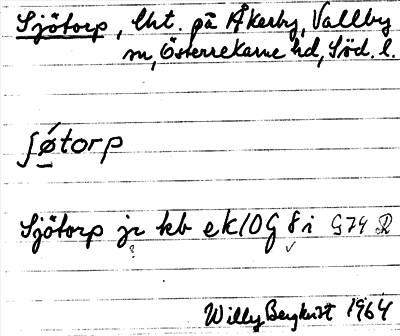 Sjötorp, lht. på Åkerby, Vallby
sn, Österrekarne hd, Söd. l.
ʃø´torp
Sjötorp jr kb ek 10G 8 i G74
Willy Bergkvist 1964